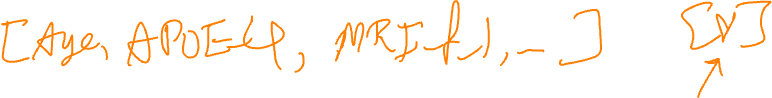 [Age, APOE4, MRI_f_1, _ ] [V]